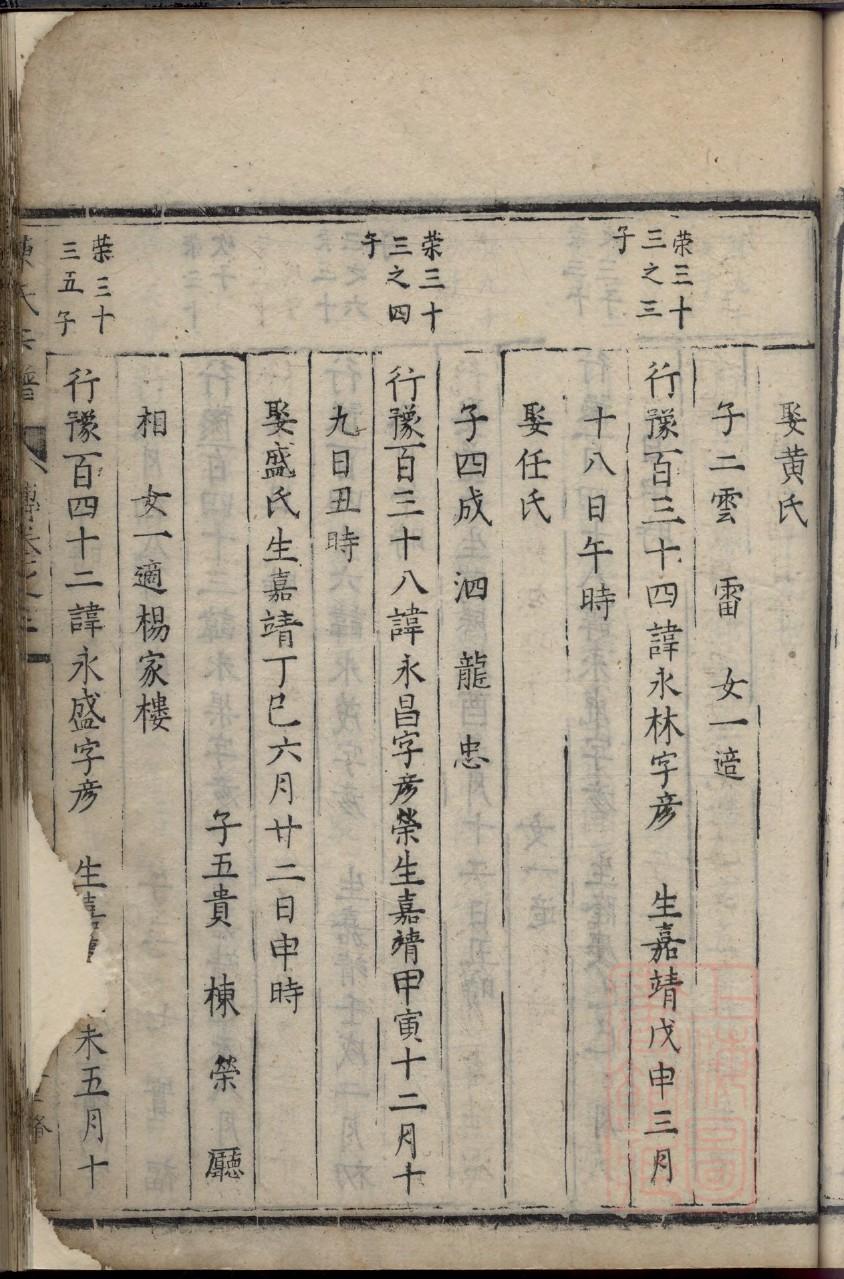 娶黃氏
子二雲 雷 女一適
榮三十
三之三
子
行豫百三十四諱永林字彥 生嘉靖戊申三月
十八日午時
娶任氏
子四成 泗 龍 忠
榮三十
三之四
子
行豫百三十八諱永昌字彥榮生嘉靖甲寅十二月十
九日丑時
娶盛氏生嘉靖丁巳六月廿二日申時
子五貴 棟 榮 廳
相 女一適楊家樓
榮三十
三五子
行豫百四十二諱永盛字彥 生嘉 未五月十